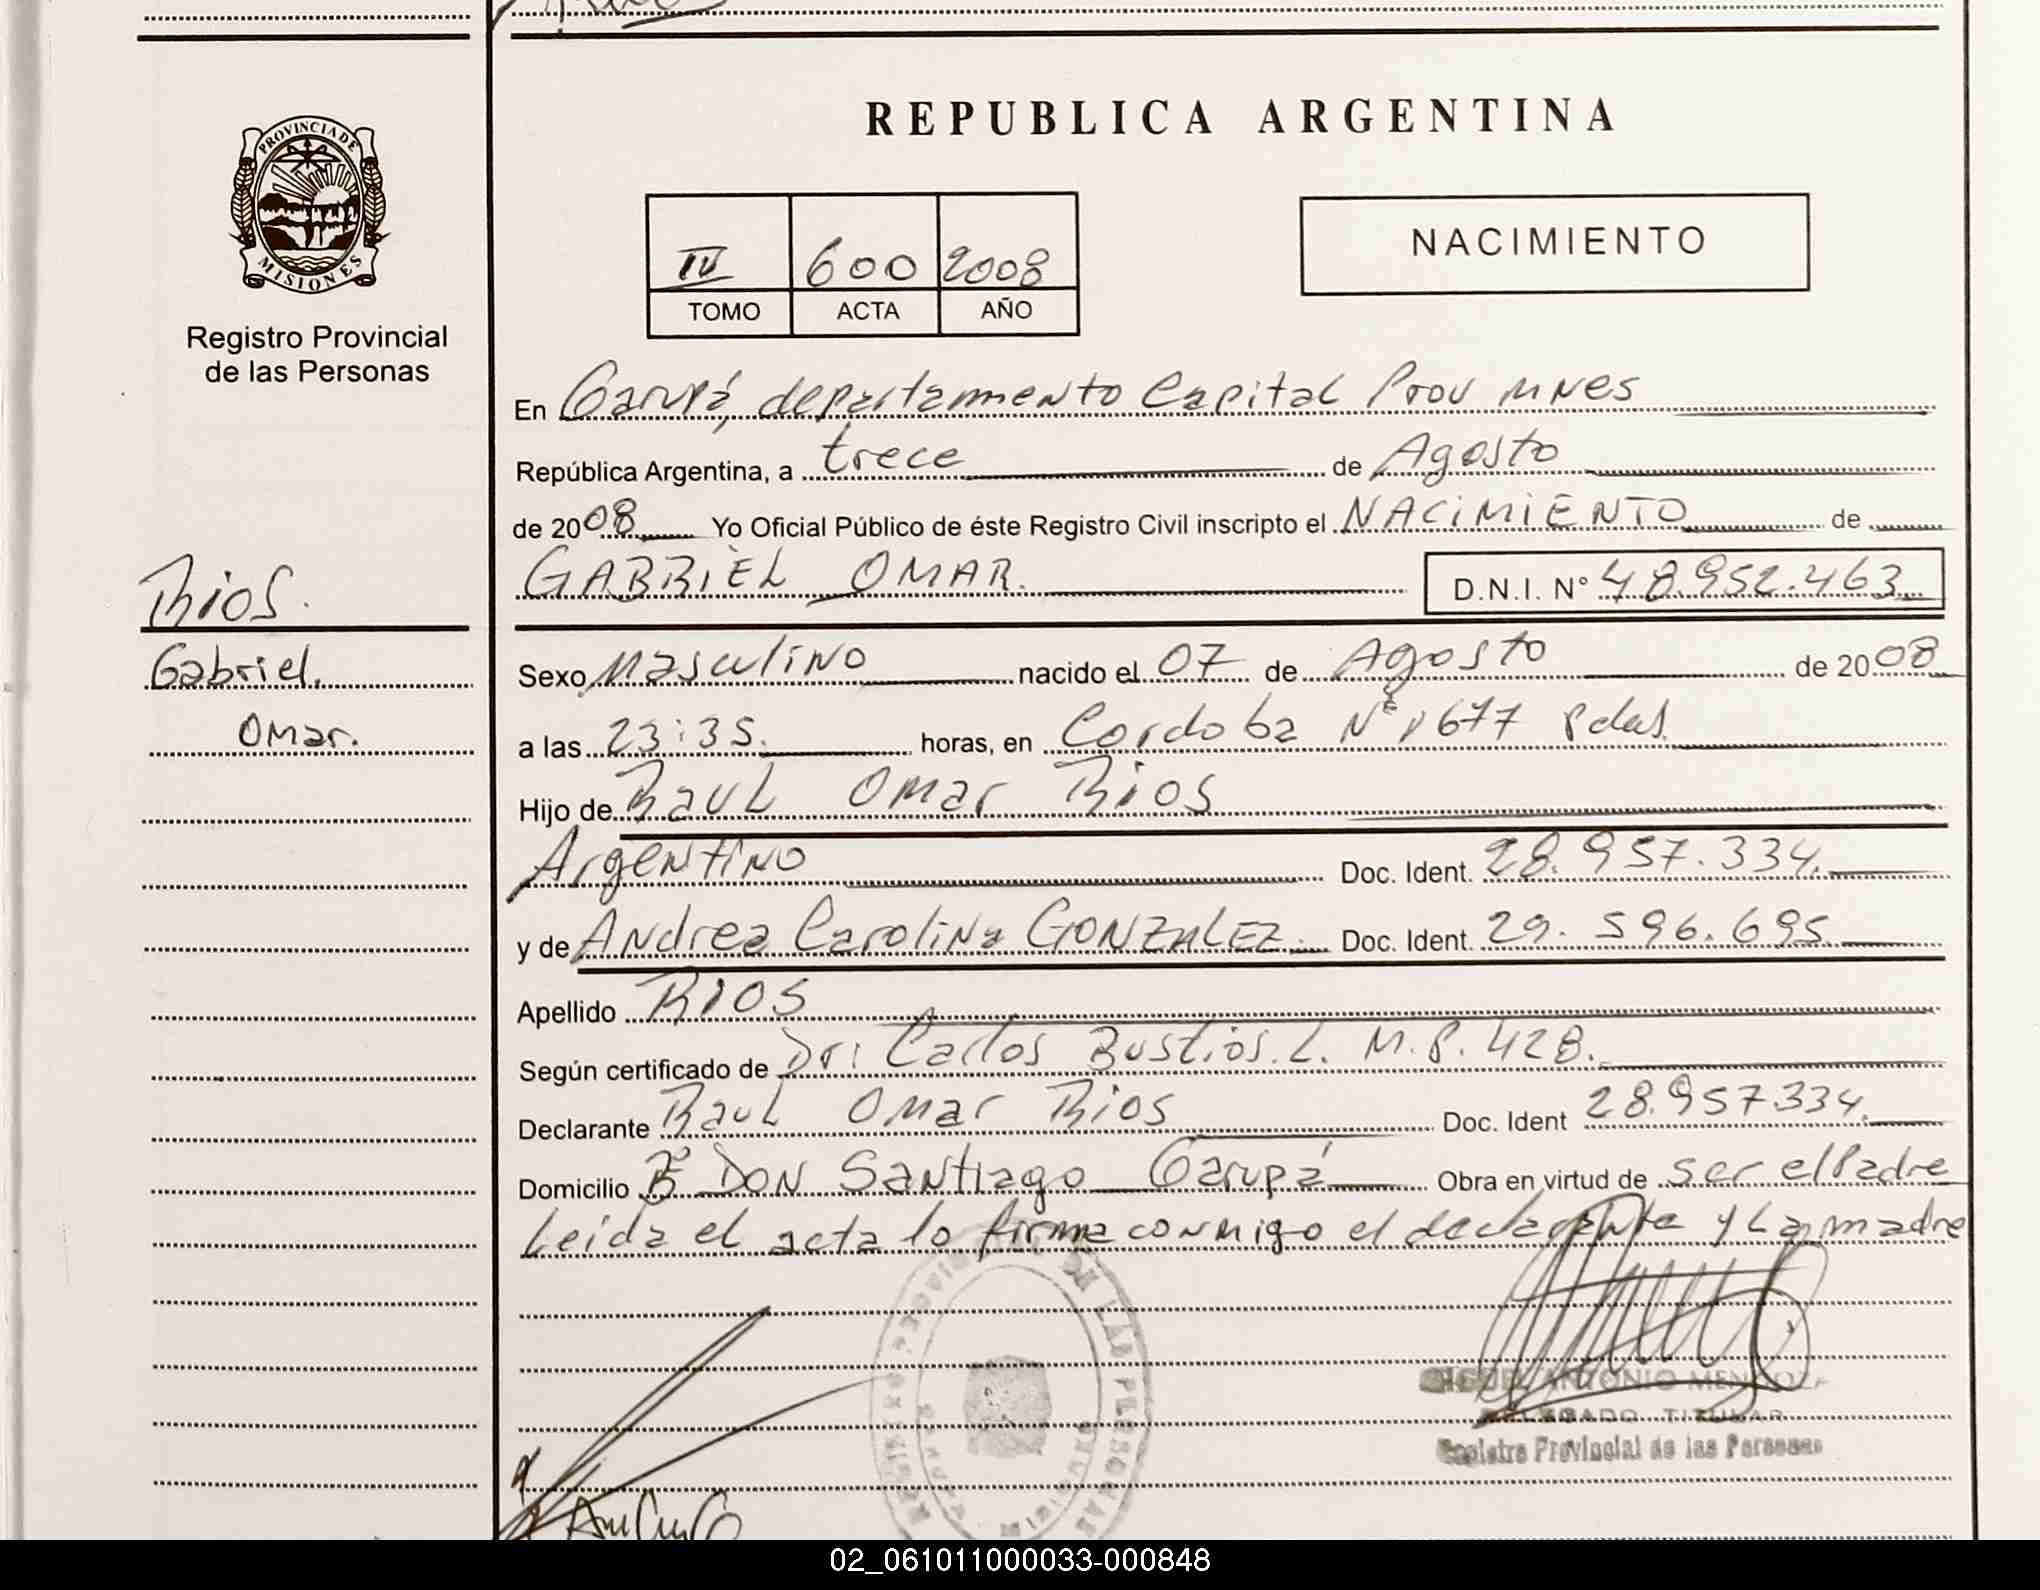 PROVINCIA DE
MISIONES
Registro Provincial
de las Personas
Rios.
Gabriel.
Omar.
REPUBLICA ARGENTINA
IV 600 2008
TOMO ACTA AÑO
NACIMIENTO
En Garupá, departamento Capital Prov mnes
República Argentina, a trece de Agosto
de 2008 Yo Oficial Público de éste Registro Civil inscripto el NACIMIENTO de
GABRIEL OMAR. D.N.I. N° 48.952.463
Sexo Masculino nacido el 07 de Agosto de 2008
a las 23:35. horas, en Cordoba Nº 1677 Pdas.
Hijo de Raul Omar Rios
Argentino Doc. Ident. 28.957.334.
y de Andrea Carolina GONZALEZ. Doc. Ident. 29.596.695
Apellido RIOS
Según certificado de Dr: Carlos Bustios. L. M.P. 428.
Declarante Raul Omar Rios Doc. Ident 28.957.334.
Domicilio Bº Don Santiago Garupá Obra en virtud de ser el Padre
Leida el acta lo firma conmigo el declarante y la madre
ANTONIO
DELEGADO TITULAR
Registro Provincial de las Personas
02_061011000033-000848